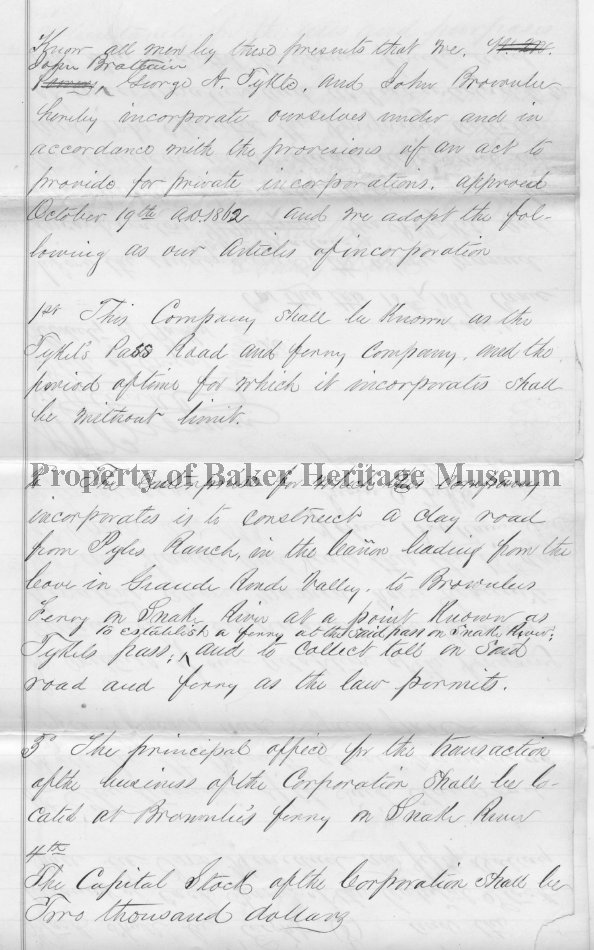 Know all men by these presents that we,
John Brattain
George A. Tykle, and John Brownlee
hereby incorporate ourselves under and in
accordance with the provisions of an act to
provide for private incorporations, approved
October 19th A.D. 1862 and we adopt the fol-
lowing as our Articles of incorporation
1st This Company shall be Known as the
Tykel's Pass Road and ferry Company, and the
period of time for which it incorporates shall
be without limit.
Property of Baker Heritage Museum
The Enterprise for which the Company
incorporates is to construct a clay road
from Pyles Ranch, in the Cañon leading from the
Cove in Grande Ronde Valley, to Brownlees
Ferry on Snake River at a point Known as
to establish a ferry at the said pass on Snake River,
Tykels pass, and to collect toll on said
road and ferry as the law permits.
3d The principal office for the transaction
of the business of the Corporation shall be lo-
cated at Brownlee's ferry on Snake River
4th
The Capital Stock of the Corporation shall be
Two thousand dollars